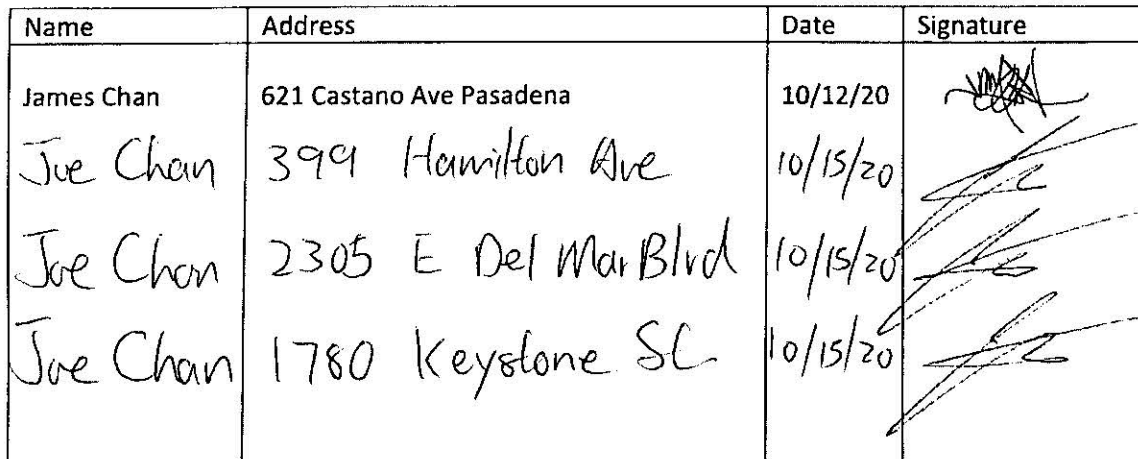 Name Address Date Signature
James Chan 621 Castano Ave Pasadena 10/12/20
Joe Chan 399 Hamilton Ave 10/15/20
Joe Chan 2305 E Del Mar Blvd 10/15/20
Joe Chan 1780 Keystone SC 10/15/20